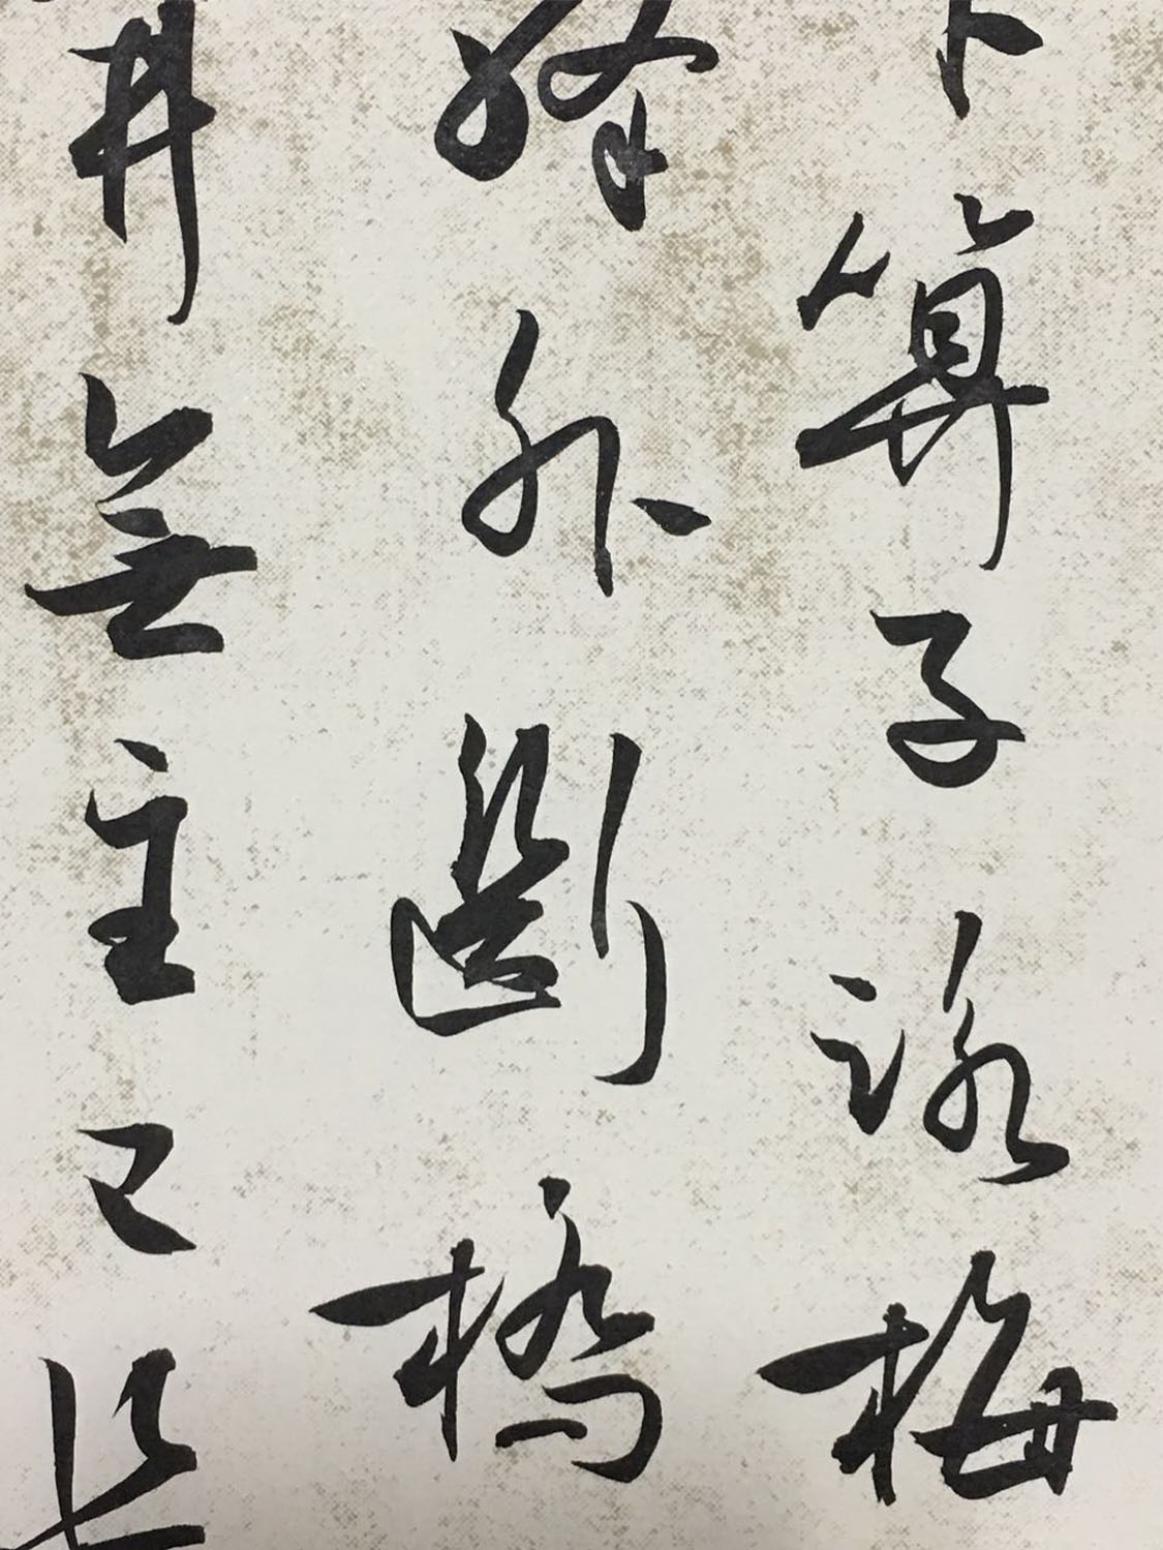 卜算子詠梅
驛外斷橋
開無主已是